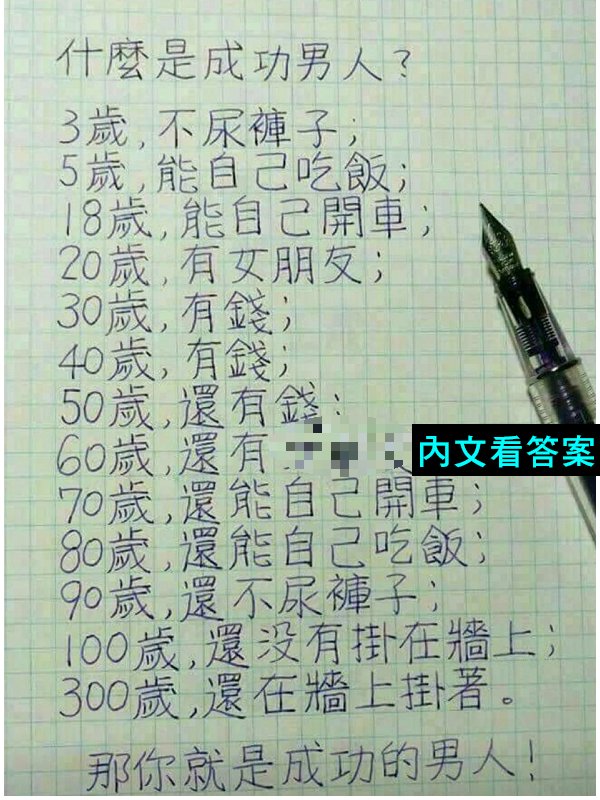 什麼是成功男人?
3歲,不尿褲子;
5歲,能自己吃飯;
18歲,能自己開車;
20歲,有女朋友;
30歲,有錢;
40歲,有錢;
50歲,還有錢;
60歲,還有
內文看答案
70歲,還能自己開車;
80歲,還能自己吃飯;
90歲,還不尿褲子;
100歲,還没有掛在牆上;
300歲,還在牆上掛著。
那你就是成功的男人!